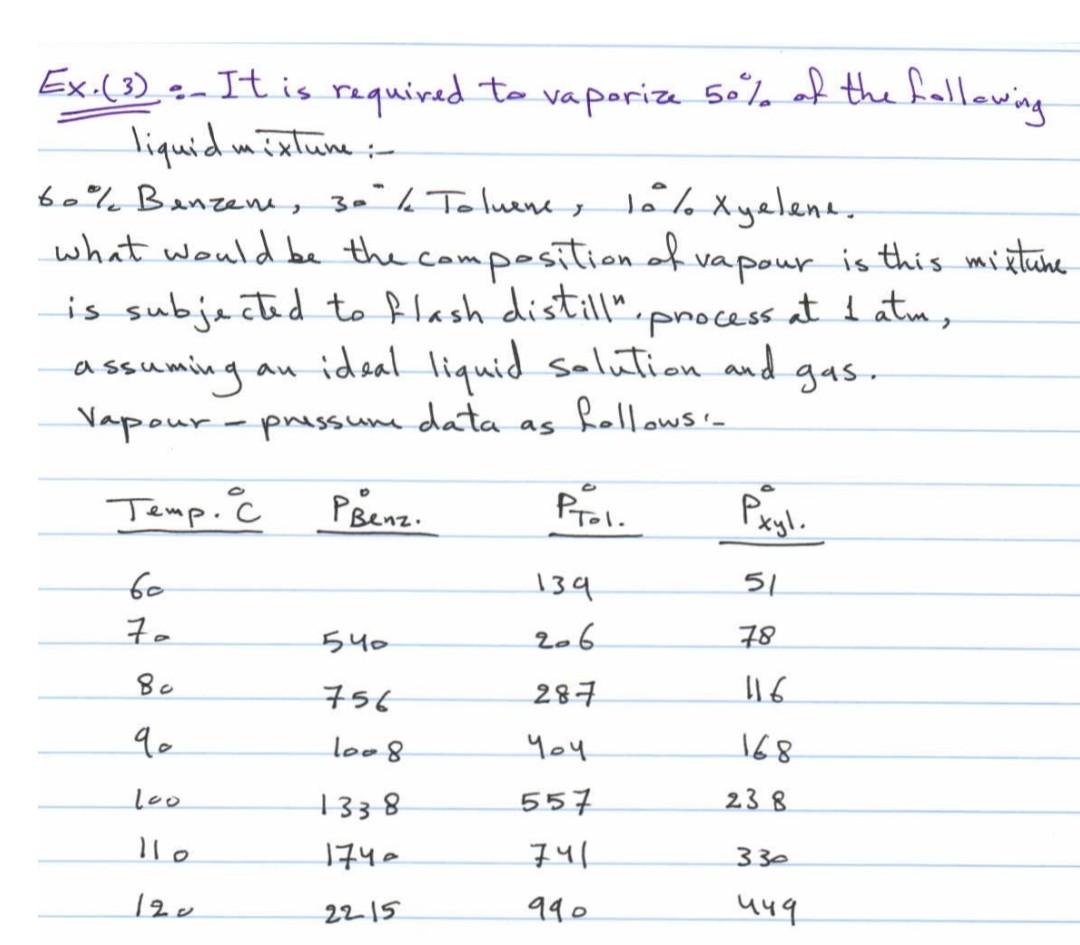 Ex.(3) :- It is required to vaporize 50% of the following
liquid mixture :-
60% Benzene, 30% Toluene, 10% Xyelene.
what would be the composition of vapour is this mixture
is subjected to flash distillⁿ. process at 1 atm,
assuming an ideal liquid solution and gas.
Vapour - pressure data as follows :-
Temp. °C P°Benz. P°Tol. P°xyl.
60 139 51
70 540 206 78
80 756 287 116
90 1008 404 168
100 1338 557 238
110 1740 741 330
120 2215 990 449